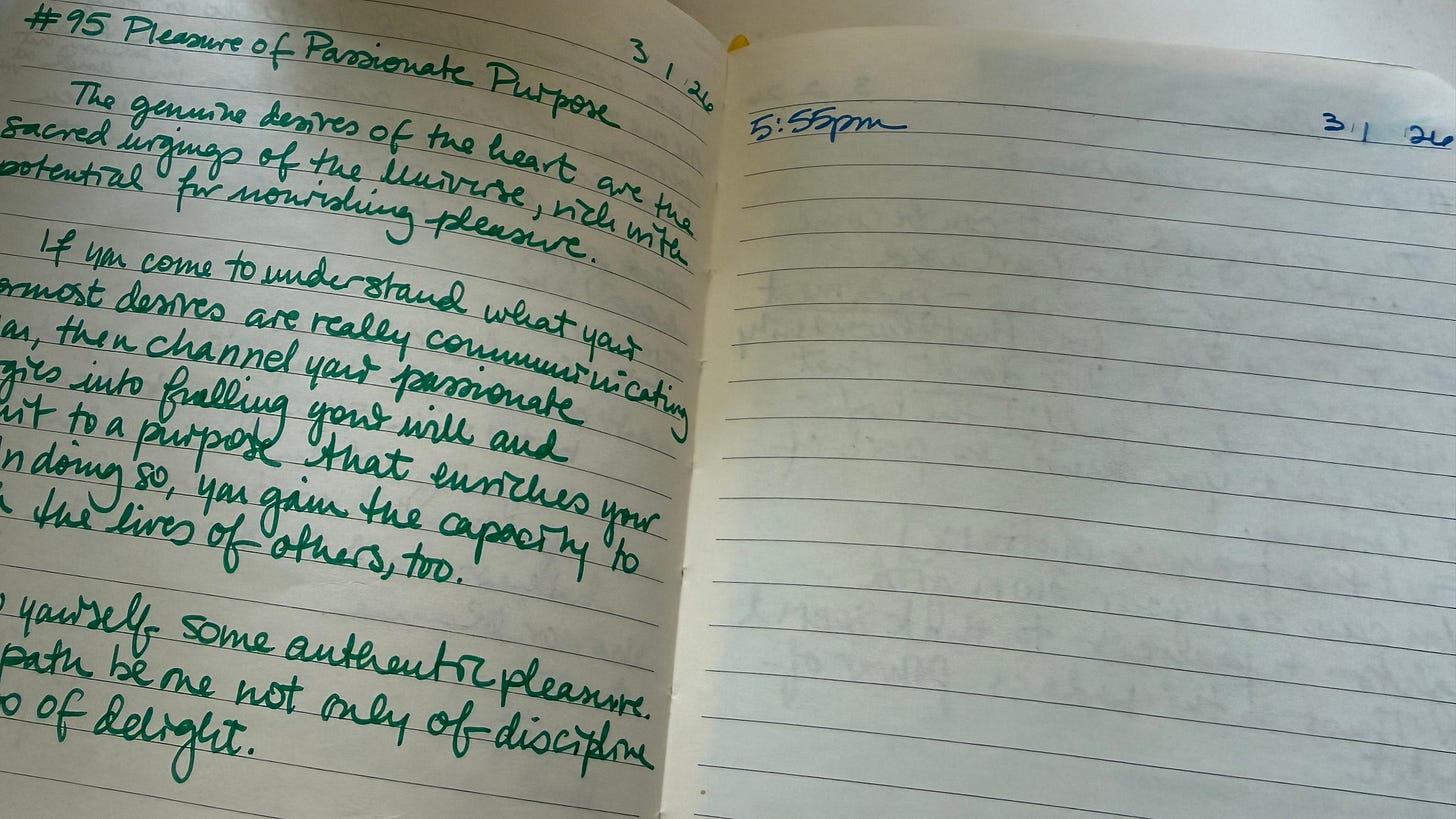 #95 Pleasure of Passionate Purpose
3 1 26
The genuine desires of the heart are the
sacred urgings of the Universe, rich with
potential for nourishing pleasure.
If you come to understand what your
ormost desires are really communicating
then channel your passionate
gies into fuelling your will and
to a purpose that enriches your
n doing so, you gain the capacity to
the lives of others, too.
yourself some authentic pleasure.
path be one not only of discipline
o of delight.
5:55pm
3 1 26